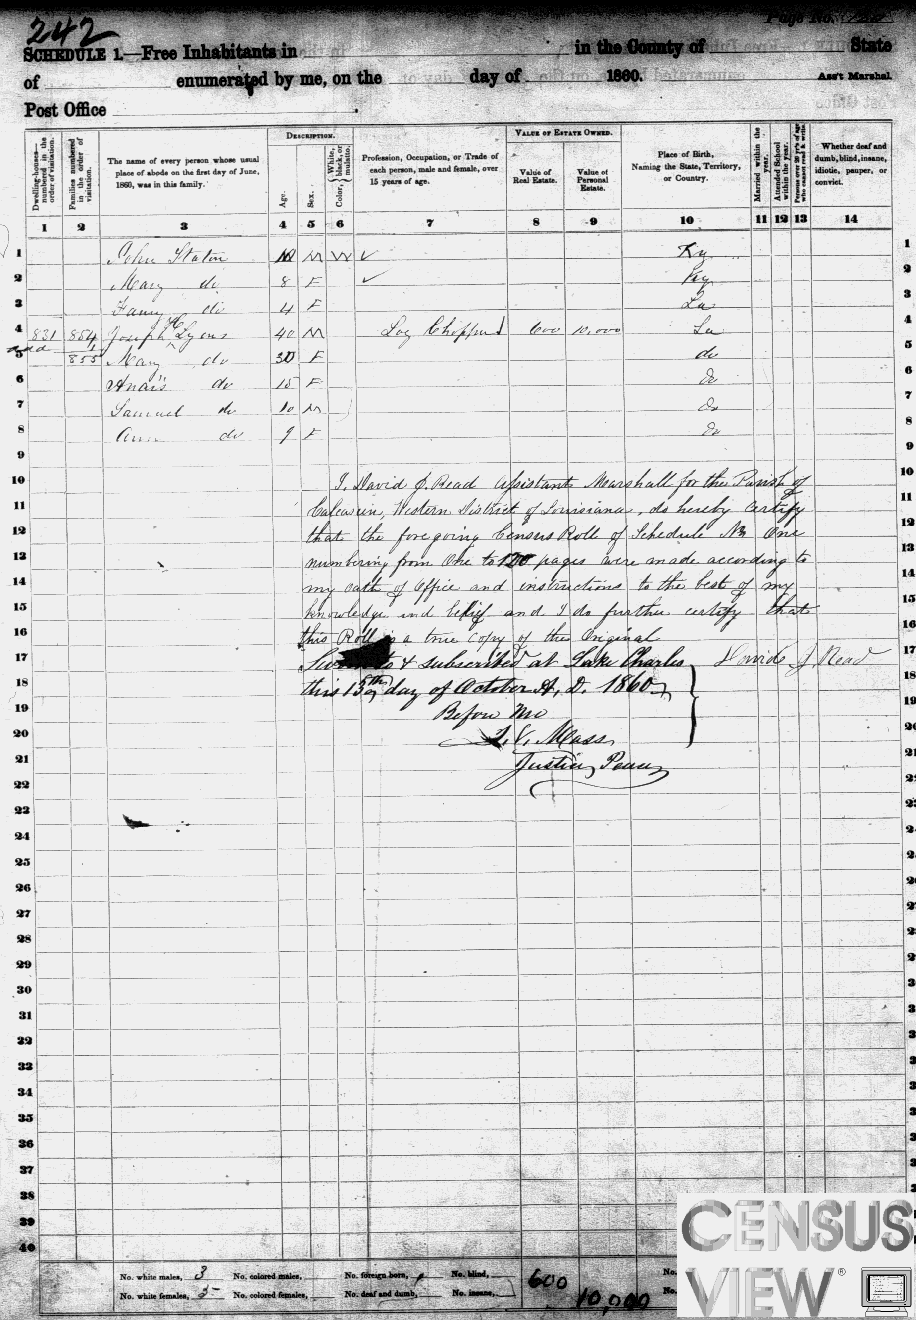 242 Page No. 120
SCHEDULE 1.—Free Inhabitants in in the County of State
of enumerated by me, on the day of 1860. Ass't Marshal.
Post Office
Dwelling-houses—numbered in the order of visitation.
Families numbered in the order of visitation.
The name of every person whose usual place of abode on the first day of June, 1860, was in this family.
DESCRIPTION.
Age.
Sex.
Color, White, black, or mulatto.
Profession, Occupation, or Trade of each person, male and female, over 15 years of age.
VALUE OF ESTATE OWNED.
Value of Real Estate.
Value of Personal Estate.
Place of Birth, Naming the State, Territory, or Country.
Married within the year.
Attended School within the year.
Persons over 20 y'rs of age who cannot read & write
Whether deaf and dumb, blind, insane, idiotic, pauper, or convict.
1 2 3 4 5 6 7 8 9 10 11 12 13 14
1 John Staton M W ✓ Ky 1
2 Mary do 8 F ✓ Ky 2
3 Fanny do 4 F La 3
4 831 854 Joseph Lyons 40 M Log Chopper 600 10,000 La 4
5 855 Mary do 30 F do 5
6 Anais do 15 F do 6
7 Samuel do 10 M do 7
8 Ann do 9 F do 8
9
10 I, David J. Read Assistant Marshall for the Parish of
11 Calcasieu, Western District of Louisiana, do hereby Certify
12 that the fore going Census Roll of Schedule No One
13 numbering from One to 120 pages were made according to
14 my oath of Office and instructions to the best of my
15 knowledge and belief and I do further certify that
16 this Roll is a true copy of the Original
17 Sworn to & subscribed at Lake Charles David J. Read
18 this 15th day of October A. D. 1860
19 Before Me
20 Moss
21 Justice Peace
22
23
24
25
26
27
28
29
30
31
32
33
34
35
36
37
38
39
40
No. white males, 3 No. colored males, No. foreign born, No. blind, 600 No.
No. white females, 5 No. colored females, No. deaf and dumb, No. insane, 10,000 No.
CENSUS
VIEW®